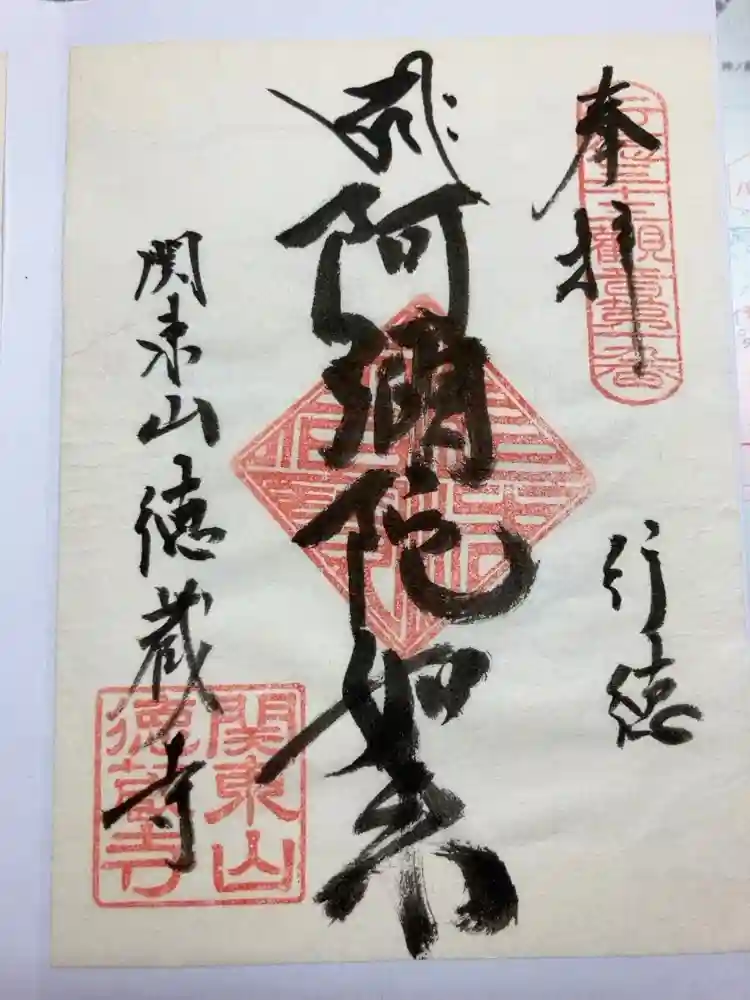 奉拝
行徳
阿彌陀如来
関東山徳蔵寺
関東山
徳蔵寺